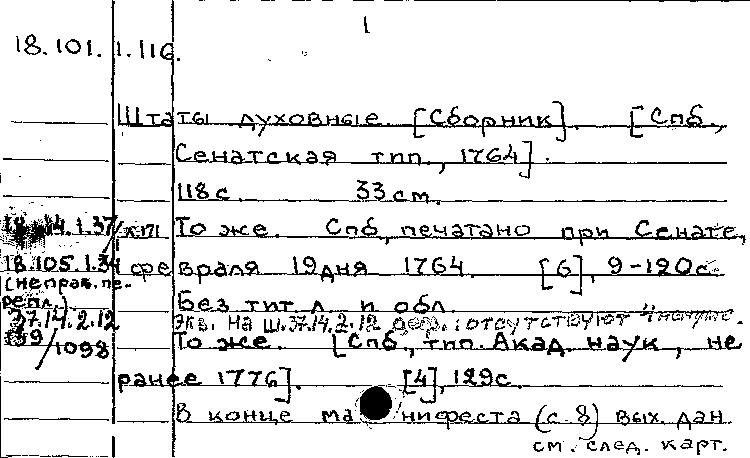 1
18.101.1.116.
Штаты духовные. [Сборник]. [Спб.,
Сенатская тип., 1764].
118 с. 33 см.
18.14.1.37/к.171 То же. Спб., печатано при Сенате,
18.105.1.34 февраля 19 дня 1764. [6], 9-120 с.
(неправ. пе-
репл.) Без тит. л. и обл.
37.14.2.12 Экз. на ш. 37.14.2.12 деф.: отсутствуют
139/1098 То же. [Спб., тип. Акад. наук, не
ранее 1776]. [4], 129 с.
В конце манифеста (с. 8) вых. дан
см. след. карт.